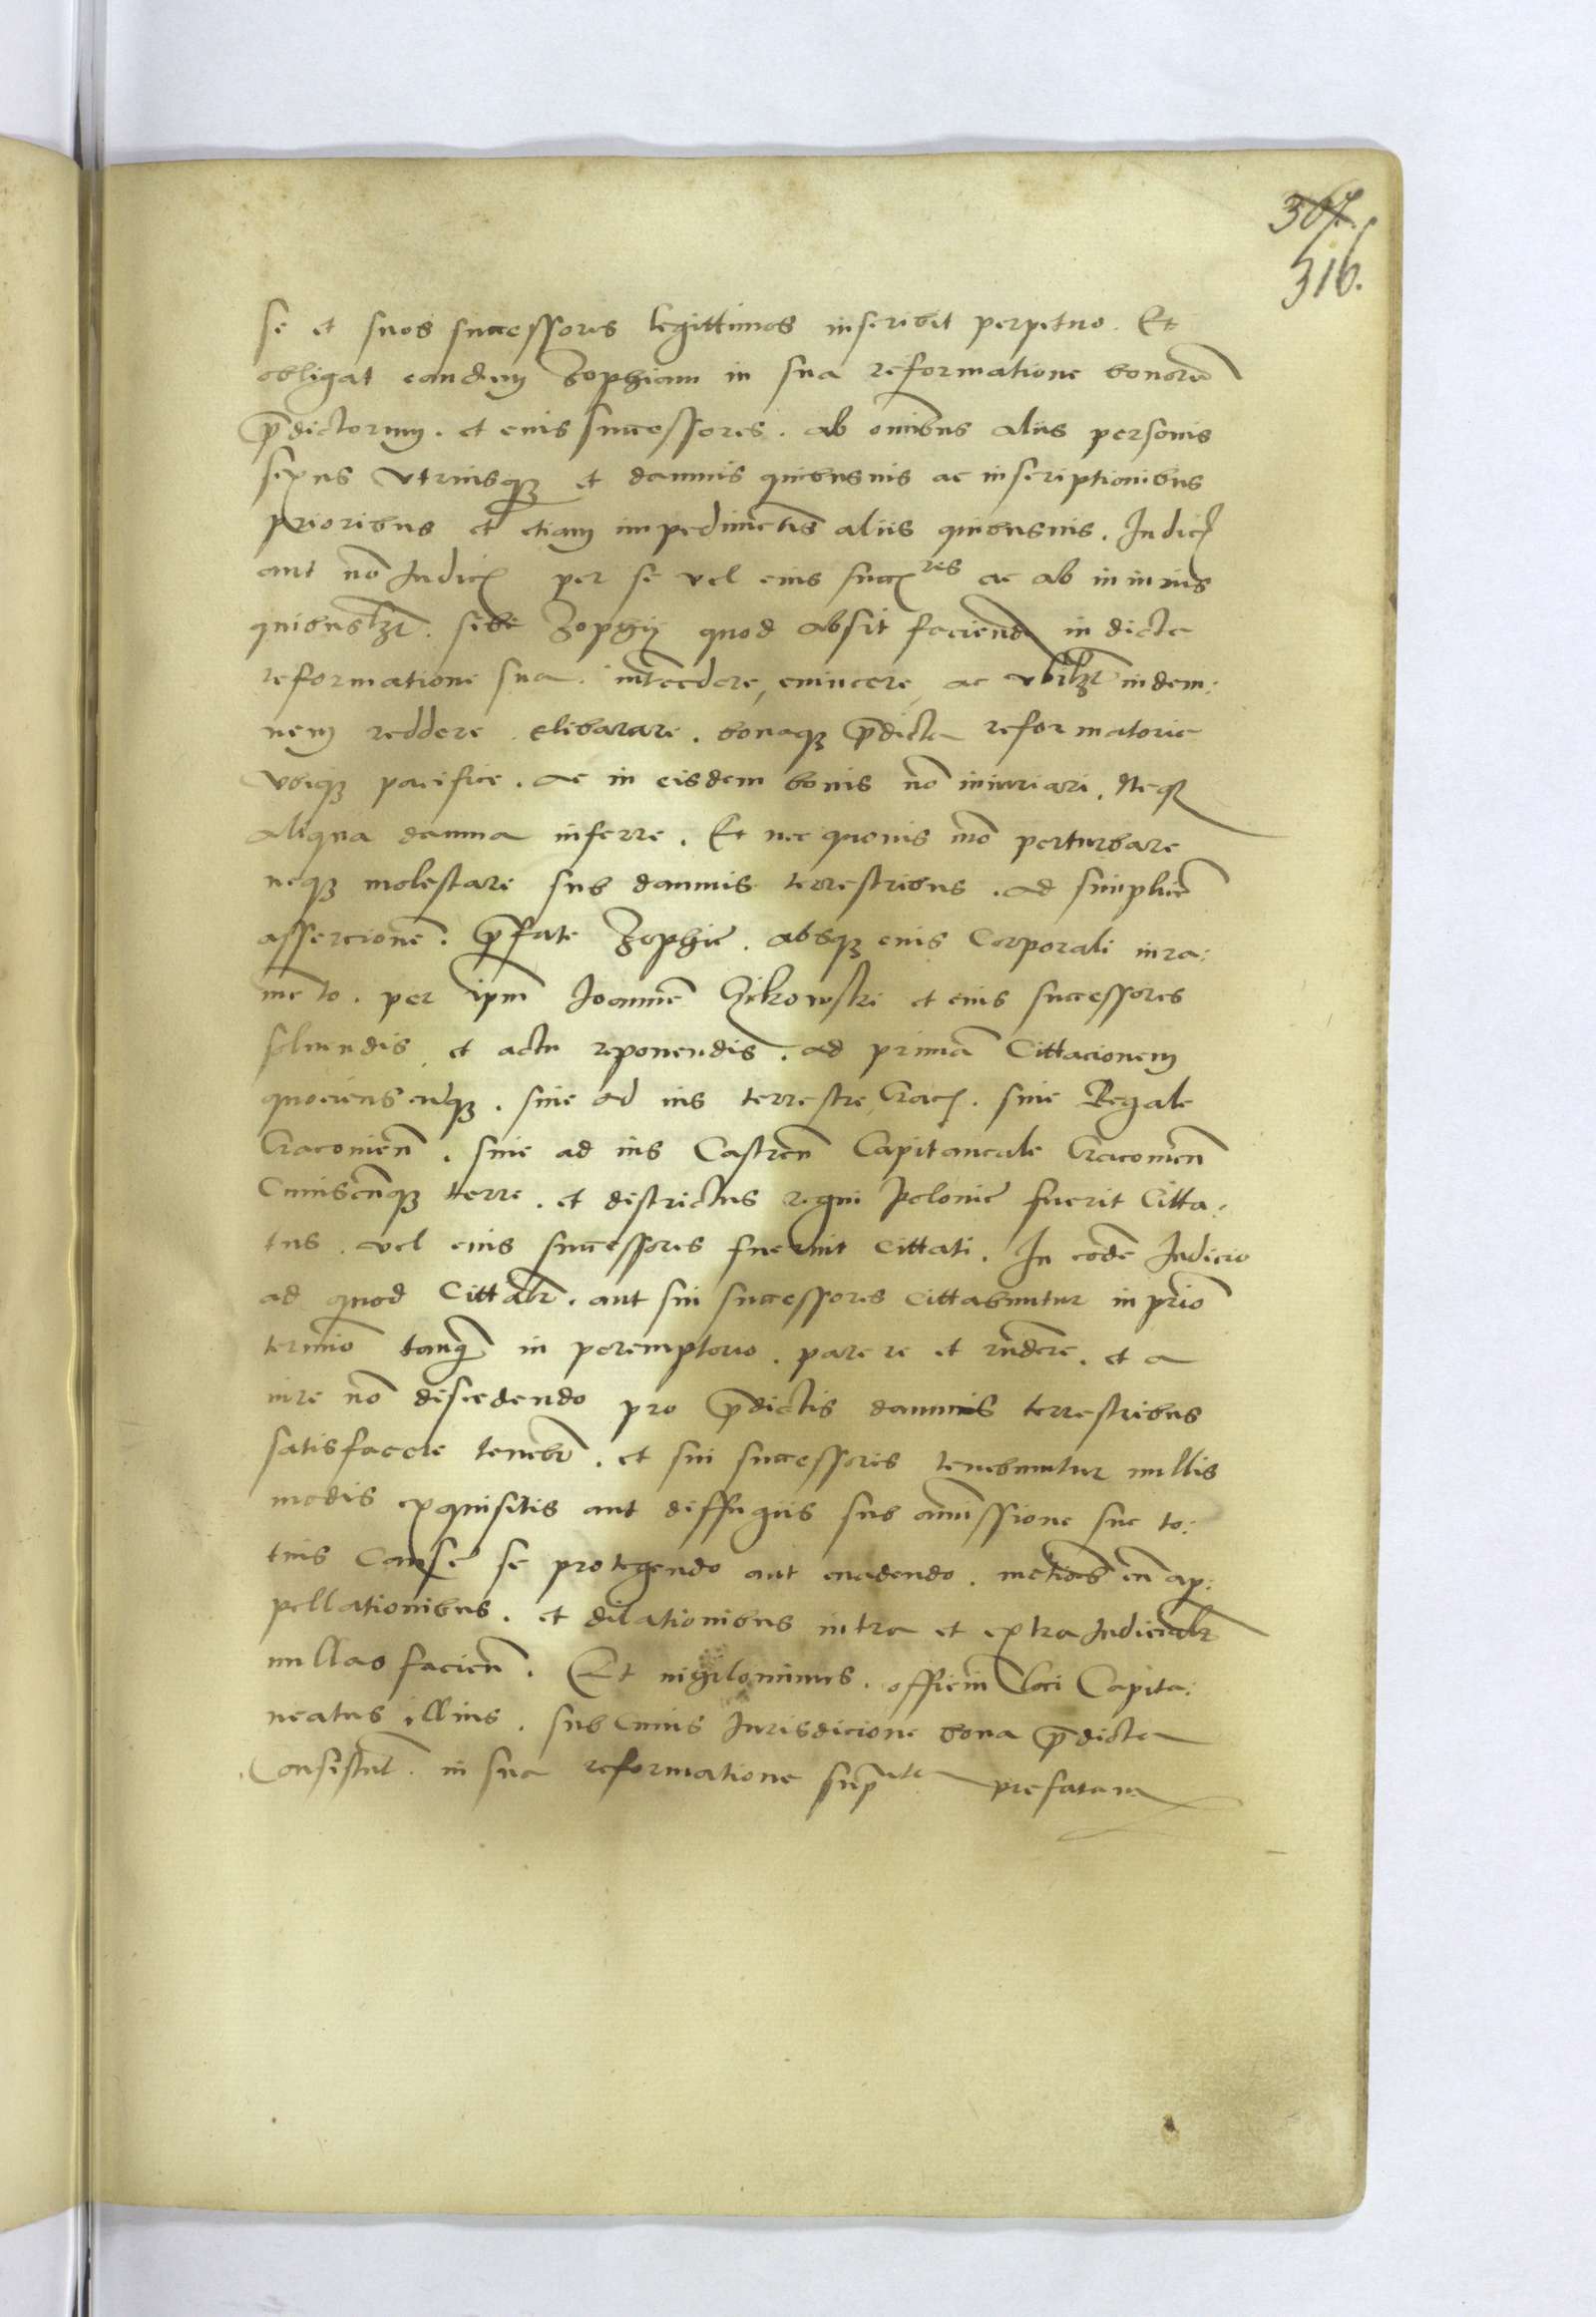 367.
316.
se et suos successores legittimos inscribit perpetuo. Et
obligat eandem Zophiam in sua reformatione bonorū
p̄dictorum. et eius successores. ab om̄ibus aliis personis
sexus vtriusq3 et damnis quibusuis ac inscriptionibus
prioribus et etiam impedimētis aliis quibusuis. Iudicʒ
aut nō Iudicʒ per se vel eius succʒres ac ab iniuriis
quibuslʒt. sibi Zophij quod absit faciend in dicta
reformatione sua. int̄cedere, euincere, ac vbilʒt indem:
nem reddere elibarare. bonaq3 p̄dicta reformatorie
vbiq3 pacifice. ac in eisdem bonis nō iniuriari. Neq3
aliqua damna inferre. Et nec quouis mō perturbare
neq3 molestare sub damnis terrestribus. ad simplicē
assercionē. p̄fate Zophie. absq3 eius Corporali iura:
mēto. per ip̄m Joannē Zikowski et eius successores
soluendis et actu reponendis. ad primā Cittacionem
quocienscūq3. siue ad ius terrestre Cracʒ. siue Regale
Cracouien̄. siue ad ius Castren̄ Capitaneale Cracouien̄
Cuiuscūq3 terre. et districtus regni Polonie fuerit Citta:
tus. vel eius successores fuerint Cittati. In eodē Iudicio
ad quod Cittabr̄. aut sui successores Cittabuntur in prīo
termīo tanq̄ in peremptorio. parere et rn̄dere. et a
iure nō discedendo pro p̄dictis damnis terrestribus
satisfacere tenebr̄. et sui successores tenebuntur nullis
modis exquisitis aut diffugiis sub amissione sue to:
tius Cause se protegendo aut euadendo. ap:
pellationibus. et dilationibus intra et extra Iudicialr̄
nullas facien̄. Et nigilominus. officiū loci Capita:
neatus illius. sub Cuius Iurisdicione bona p̄dicta
Consistūt. in sua reformatione prefatam